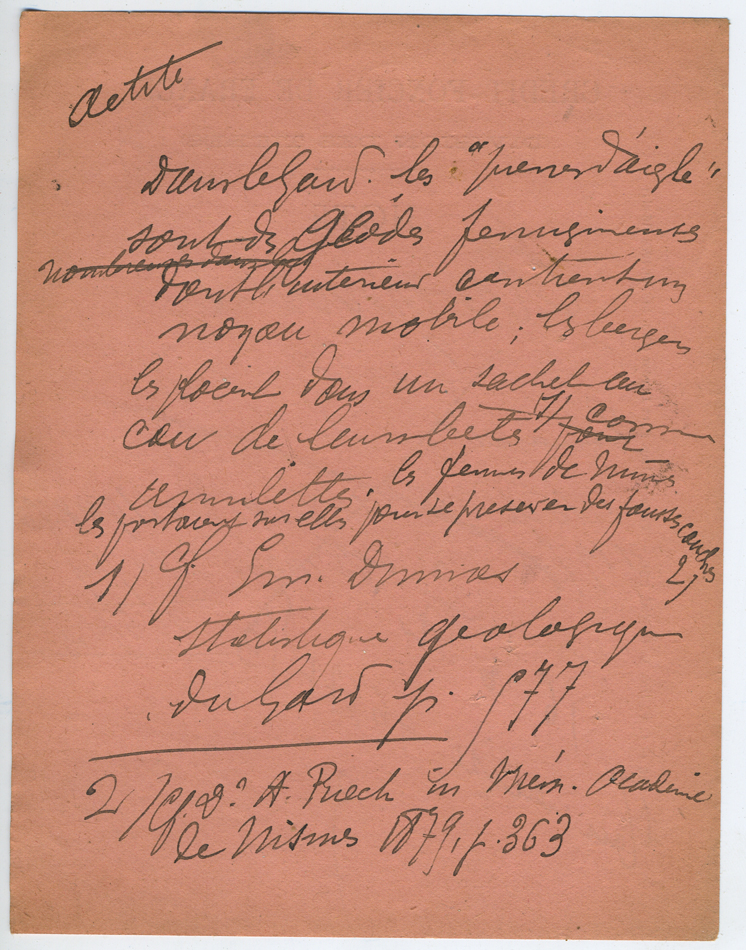 Aetite
Dans le Gard. les "pierres d'aigle"
sont des Géodes ferrugineuses
nombreuses dans les
dont l'interieur contient un
noyau mobile; les bergers
les placent dans un sachet au
cou de leurs bêtes 1) comme
pour
amulettes. les femmes de Nimes
les portaient sur elles pour se preserver des fausses couches
2)
1) Cf. Em. Dumas
Statistique geologique
du Gard p. 577
2/ Cf. Dr A. Puech in Mém. Academie
de Nismes 1879, p. 363